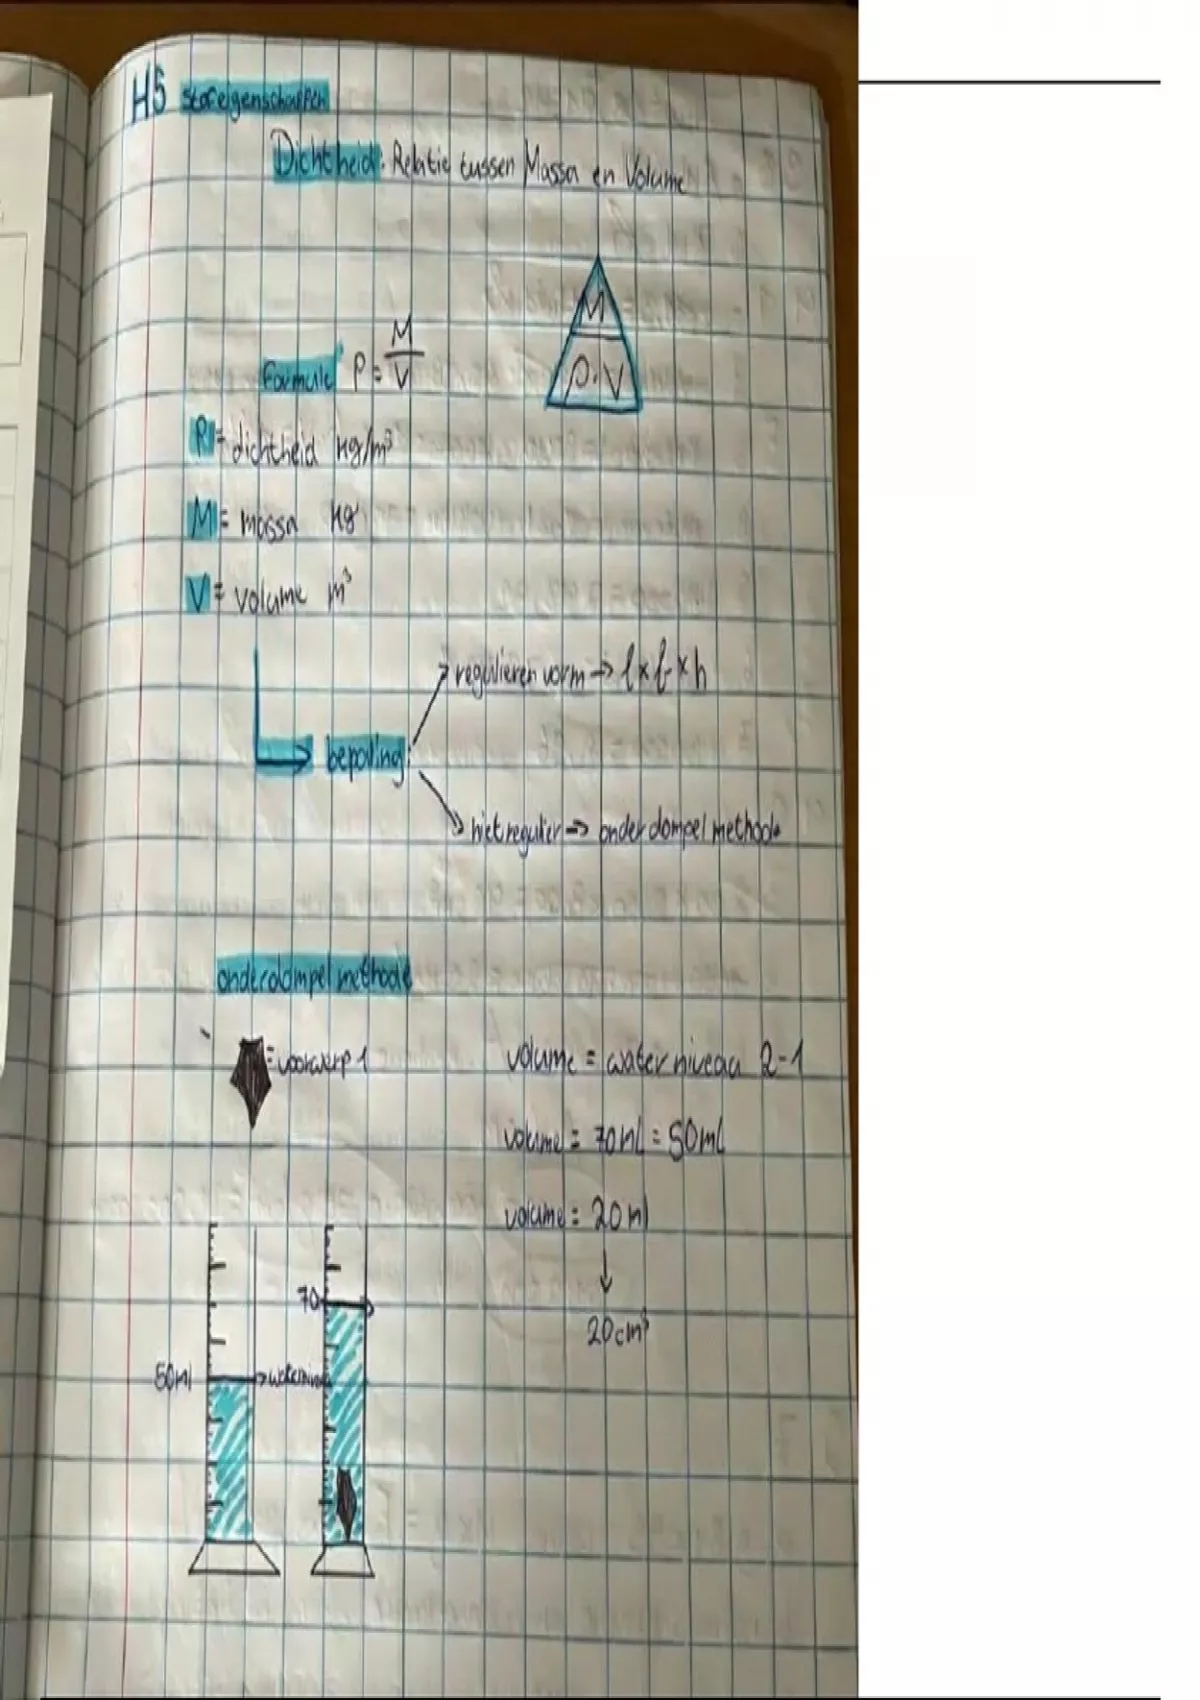 H5 stofeigenschappen
Dichtheid: Relatie tussen Massa en Volume
M
ρ.V
Formule ρ = M
V
ρ = dichtheid kg/m³
M = massa kg
V = volume m³
regulieren vorm → l x b x h
bepaling:
niet regulier → onderdompel methode
onderdompel methode
= voorwerp 1
volume = water niveau 2-1
volume = 70ml = 50ml
volume = 20ml
↓
20cm³
70
50ml